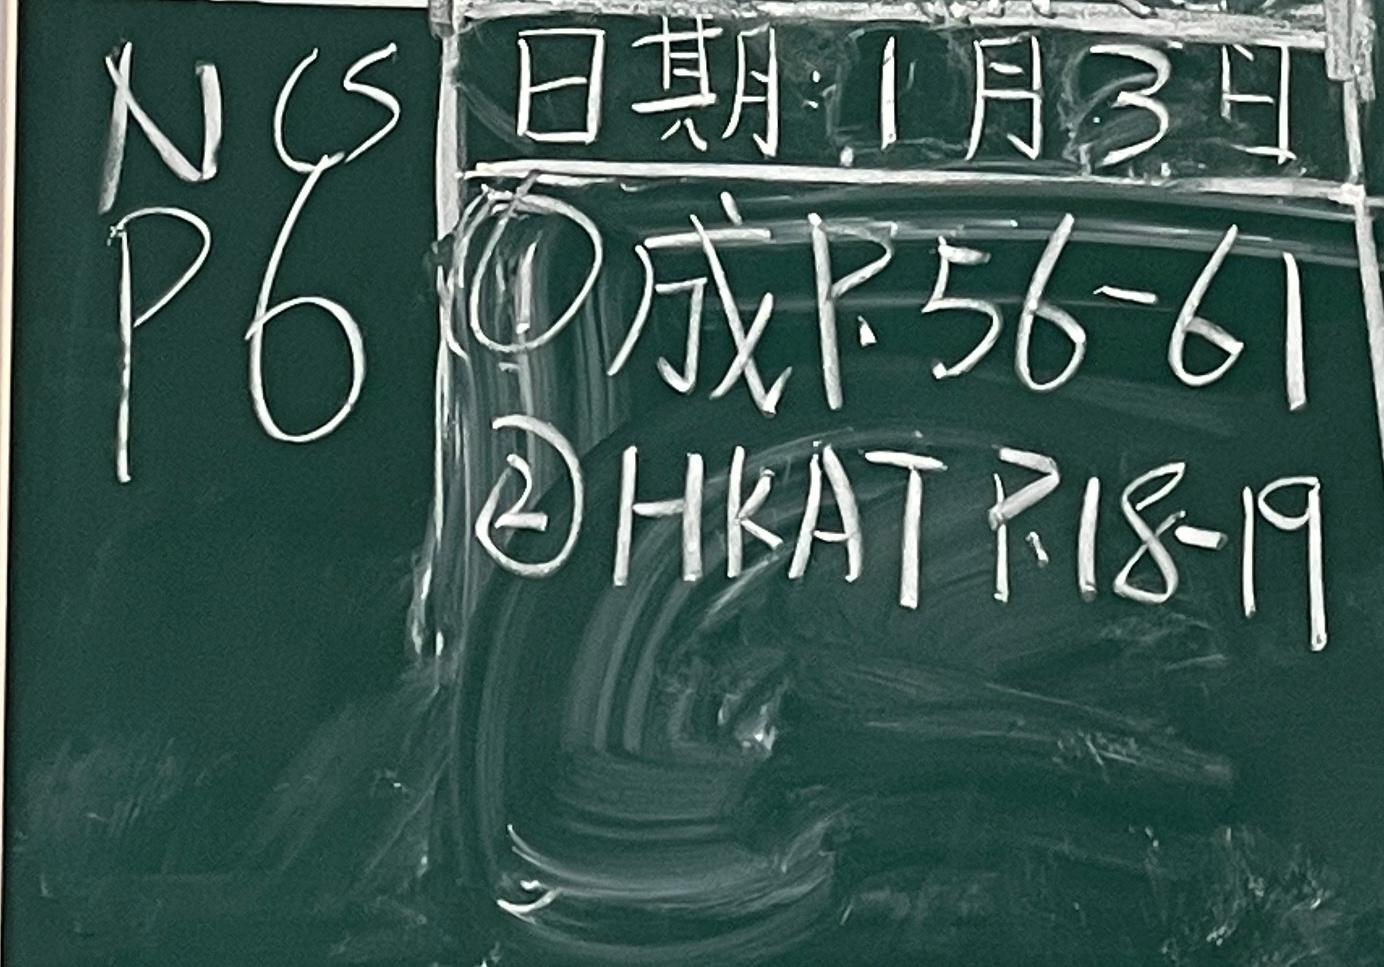 NCS
P6
日期:1月3日
①成P.56-61
②HKAT P.18-19